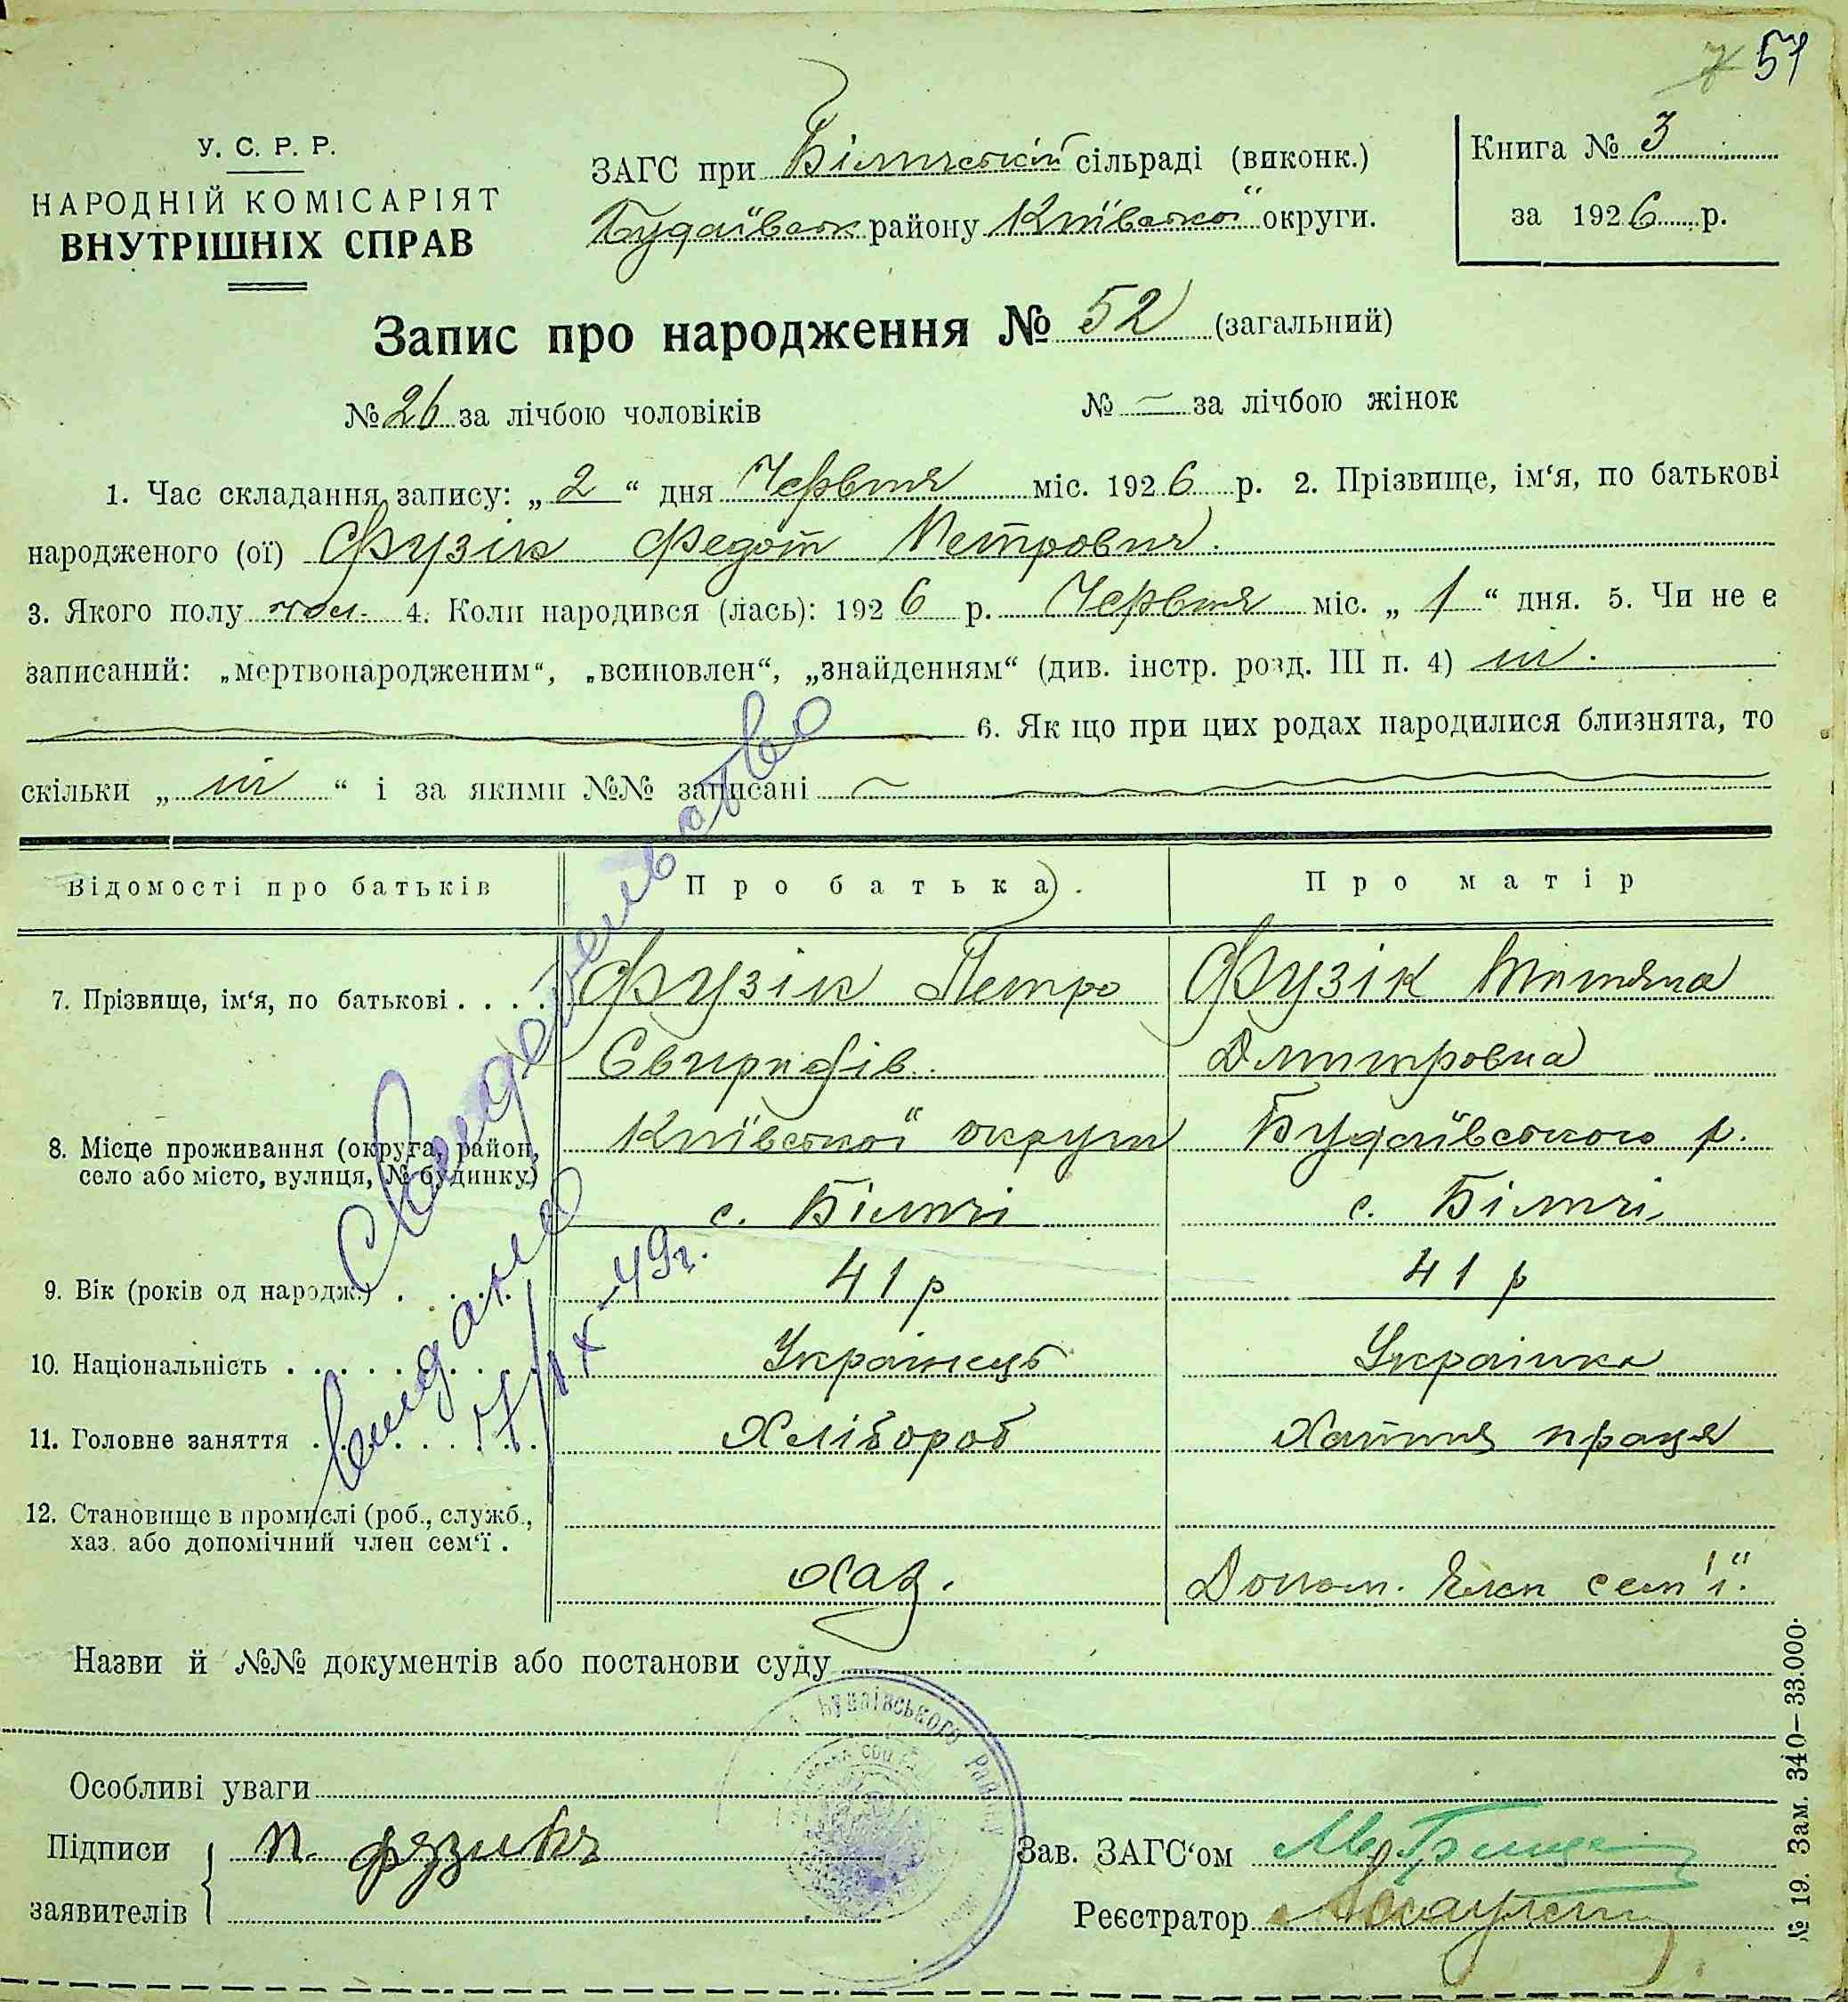 51
У. С. Р. Р.
НАРОДНІЙ КОМІСАРІЯТ
ВНУТРІШНІХ СПРАВ
ЗАГС при Білицькій сільраді (виконк.)
Будаївськ району Київської округи.
Книга № 3
за 1926 р.
Запис про народження № 52 (загальний)
№ 26 за лічбою чоловіків № — за лічбою жінок
1. Час складання запису: „ 2 “ дня Червня міс. 1926 р. 2. Прізвище, ім‘я, по батькові
народженого (ої) Фузік Федот Петрович.
3. Якого полу чол. 4. Коли народився (лась): 1926 р. Червня міс. „ 1 “ дня. 5. Чи не є
записаний: „мертвонародженим“, „всиновлен“, „знайденням“ (див. інстр. розд. III п. 4) ні.
6. Як що при цих родах народилися близнята, то
скільки „ ні “ і за якими №№ записані —
Відомості про батьків Про батька. Про матір
7. Прізвище, ім‘я, по батькові . . . . Фузік Петро Фузік Тетяна
Свиридів. Дмитровна
8. Місце проживання (округа, район, Київської округи Будаївського р.
село або місто, вулиця, № будинку) с. Біличі с. Біличі
9. Вік (років од народж.) . . . 41 р 41 р
10. Національність . . . . . . . Українець Українка
11. Головне заняття . . . . . . . Хлібороб Хатня праця
12. Становище в промислі (роб., служб.,
хаз. або допомічний член сем‘ї . хаз. Допом. член сем'ї.
Свидетельство
выдано
17/IX-49г.
Назви й №№ документів або постанови суду
Особливі уваги
Підписи заявителів п. фузикъ
Зав. ЗАГС‘ом
Реєстратор
Будаївського Району
№ 19. Зам. 340—33.000.